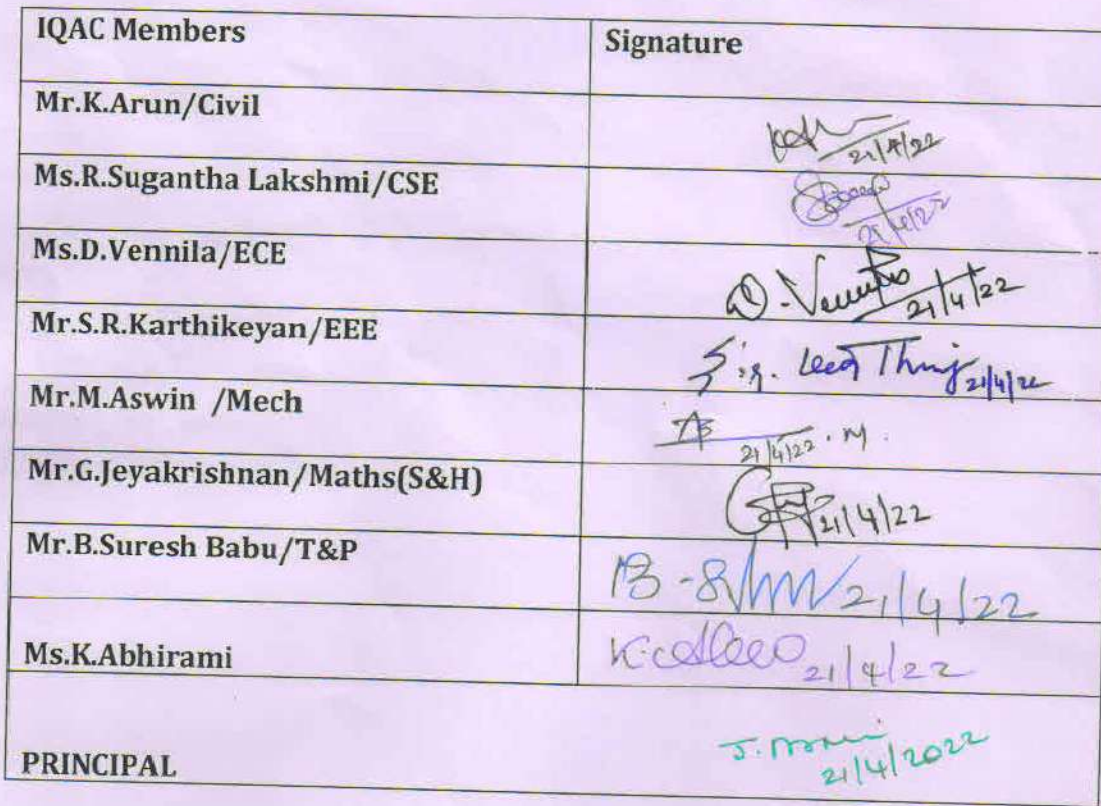 IQAC Members Signature
Mr.K.Arun/Civil 21/4/22
Ms.R.Sugantha Lakshmi/CSE 21/4/22
Ms.D.Vennila/ECE D. 21/4/22
Mr.S.R.Karthikeyan/EEE 21/4/22
Mr.M.Aswin /Mech 21/4/22 . M.
Mr.G.Jeyakrishnan/Maths(S&H) 21/4/22
Mr.B.Suresh Babu/T&P B - 21/4/22
Ms.K.Abhirami 21/4/22
PRINCIPAL J. 21/4/2022